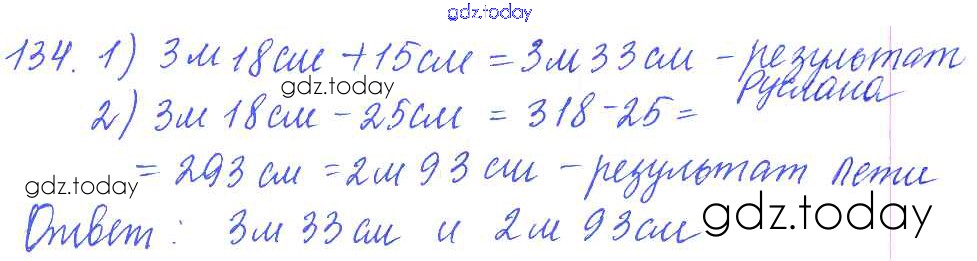 gdz.today
134. 1) 3м 18см + 15см = 3м 33см - результат
Руслана
gdz.today
2) 3м 18см - 25см = 318 - 25 =
= 293 см = 2м 93 см - результат Пети
gdz.today
Ответ: 3м 33см и 2м 93см
gdz.today